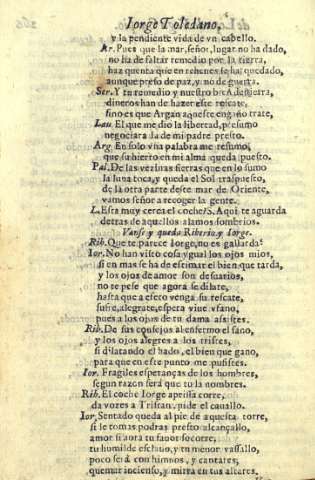 Iorge Toledano,
y la pendiente vida de vn cabello.
Ar. Pues que la mar, señor, lugar no ha dado,
no ha de faltar remedio por la tierra,
haz quenta que en rehenes se ha quedado,
aunque preso de paz, y no de guerra.
Ser. Y tu remedio y nuestro bien destierra,
dineros han de hazer este rescate,
sino es que Argan aqueste engaño trate,
Lau. El que me dio la libertad, presumo
negociara la de mi padre presto.
Arg. En solo vna palabra me resumo,
que su hierro en mi alma queda puesto.
Pal. De las vezinas sierras que en lo sumo
la luna toca, y queda el Sol traspuesto
de la otra parte deste mar de Oriente,
vamos señor a recoger la gente.
L. Esta muy cerca el coche? S. Aqui te aguarda
detras de aquellos alamos sombrios.
Vanse y queda Riberio, y Iorge.
Rib. Que te parece Iorge, no es gallarda?
Ior. No han visto cosa ygual los ojos mios,
si en mas se ha de estimar el bien que tarda,
y los ojos de amor son desuarios,
no te pese que agora se dilate,
hasta que a efeto venga su rescate,
sufre, alegrate, espera viue vfano,
pues a los ojos de tu dama assistes.
Rib. De sus consejos al enfermo el sano,
y los ojos alegres a los tristes,
si dilatando el hado, el bien que gano,
para que en este punto me pusistes.
Ior. Fragiles esperanças de los hombres,
segun razon será que tu la nombres.
Rib. El coche Iorge aprissa corre,
da vozes a Tristan, pide el cauallo.
Ior, Sentado queda al pie de aquesta torre,
si le tomas podras presto alcançallo,
amor si aora tu fauor socorre,
tu humilde esclauo, y tu menor vassallo,
poco será con himnos, y cantares,
quemar incienso, y mirra en tus altares.